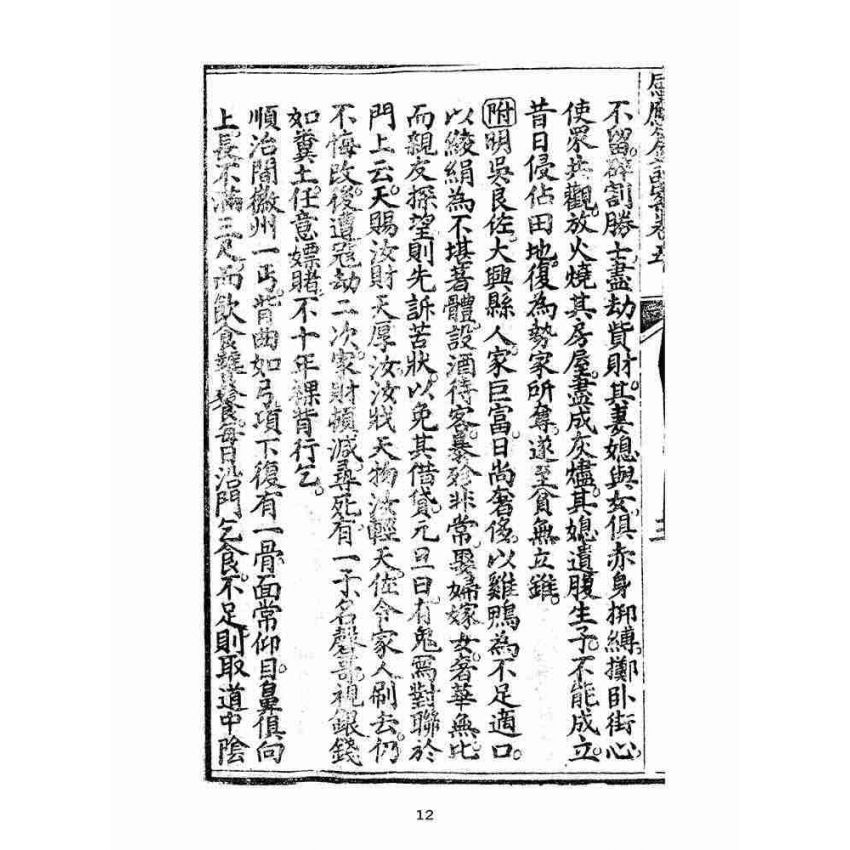 不留。辟割勝士。盡劫貲財。其妻媳與女。俱赤身抑縛。擲臥街心。
使眾共觀。放火燒其房屋。盡成灰燼。其媳遺腹生子。不能成立。
昔日侵佔田地。復為勢家所奪。遂至貧無立錐。
附明吳良佐。大興縣人。家巨富。日尚奢侈。以雞鴨為不足適口。
以綾絹為不堪著體。設酒待客。暴殄非常。娶婦嫁女。奢華無比。
而親友探望。則先訴苦狀。以免其借貸。元旦日。有鬼寫對聯於
門上云。天賜汝財天厚汝。汝戕天物汝輕天。佐令家人刷去。仍
不悔改。後遭寇劫二次。家財頓減。尋死。有一子名馨哥。視銀錢
如糞土。任意嫖賭。不十年。裸背行乞。
順治間。徽州一丐。背曲如弓。項下復有一骨。面常仰。目鼻俱向
上。長不滿三尺。而飲食饕餮。每日沿門乞食。不足則取道中陰
12